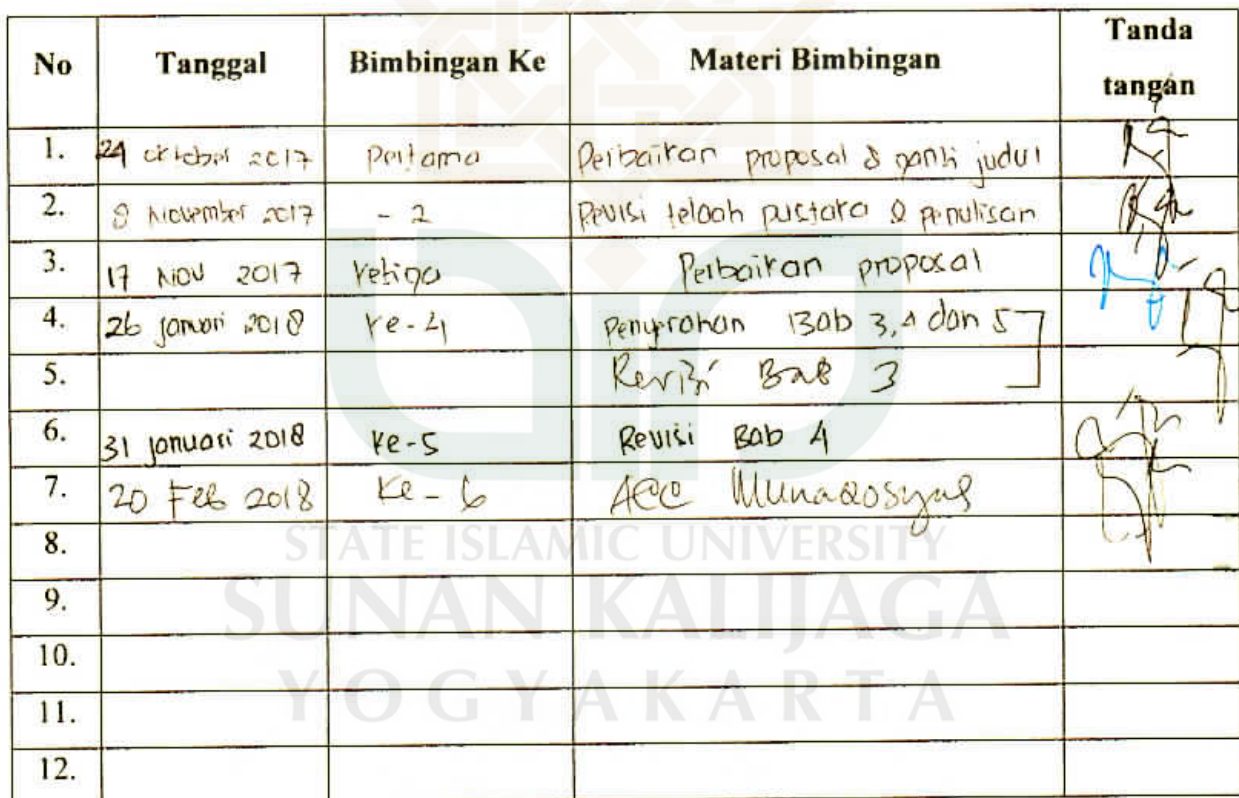 No Tanggal Bimbingan Ke Materi Bimbingan Tanda tangan
1. 24 oktober 2017 pertama Perbaikan proposal & ganti judul
2. 8 November 2017 - 2 Revisi telaah pustaka & penulisan
3. 17 NOV 2017 ketiga Perbaikan proposal
4. 26 januari 2018 ke-4 Penyerahan Bab 3, 4 dan 5
5. Revisi Bab 3
6. 31 januari 2018 ke-5 Revisi Bab 4
7. 20 Feb 2018 Ke-6 ACC Munaqosyah
8.
9.
10.
11.
12.
STATE ISLAMIC UNIVERSITY
SUNAN KALIJAGA
YOGYAKARTA